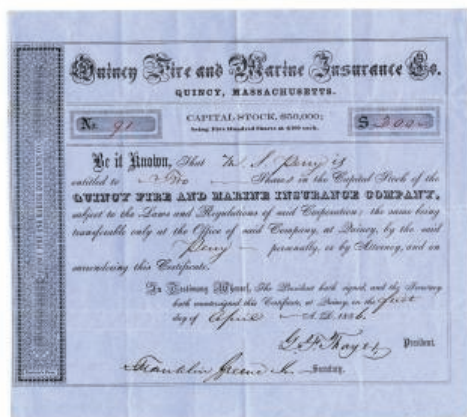 Quincy Fire and Marine Insurance Co.
QUINCY, MASSACHUSETTS.
No. 91
CAPITAL STOCK, $50,000;
being Five Hundred Shares at $100 each.
$ 200
Be it Known, That W. S. Perry is
entitled to Two Shares in the Capital Stock of the
QUINCY FIRE AND MARINE INSURANCE COMPANY,
subject to the Laws and Regulations of said Corporation; the same being
transferable only at the Office of said Company, at Quincy, by the said
Perry personally, or by Attorney, and on
surrendering this Certificate.
In Testimony Whereof, The President hath signed, and the Secretary
hath countersigned this Certificate, at Quincy, on the first
day of April A.D. 1856.
G. F. Thayer, President.
Franklin Greene Jr. Secretary.